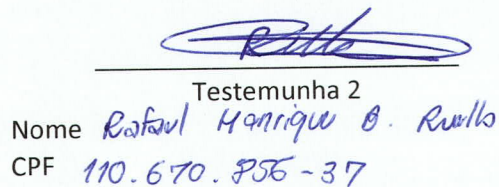 Testemunha 2
Nome Rafael Henrique B.
CPF 110.670.856-37